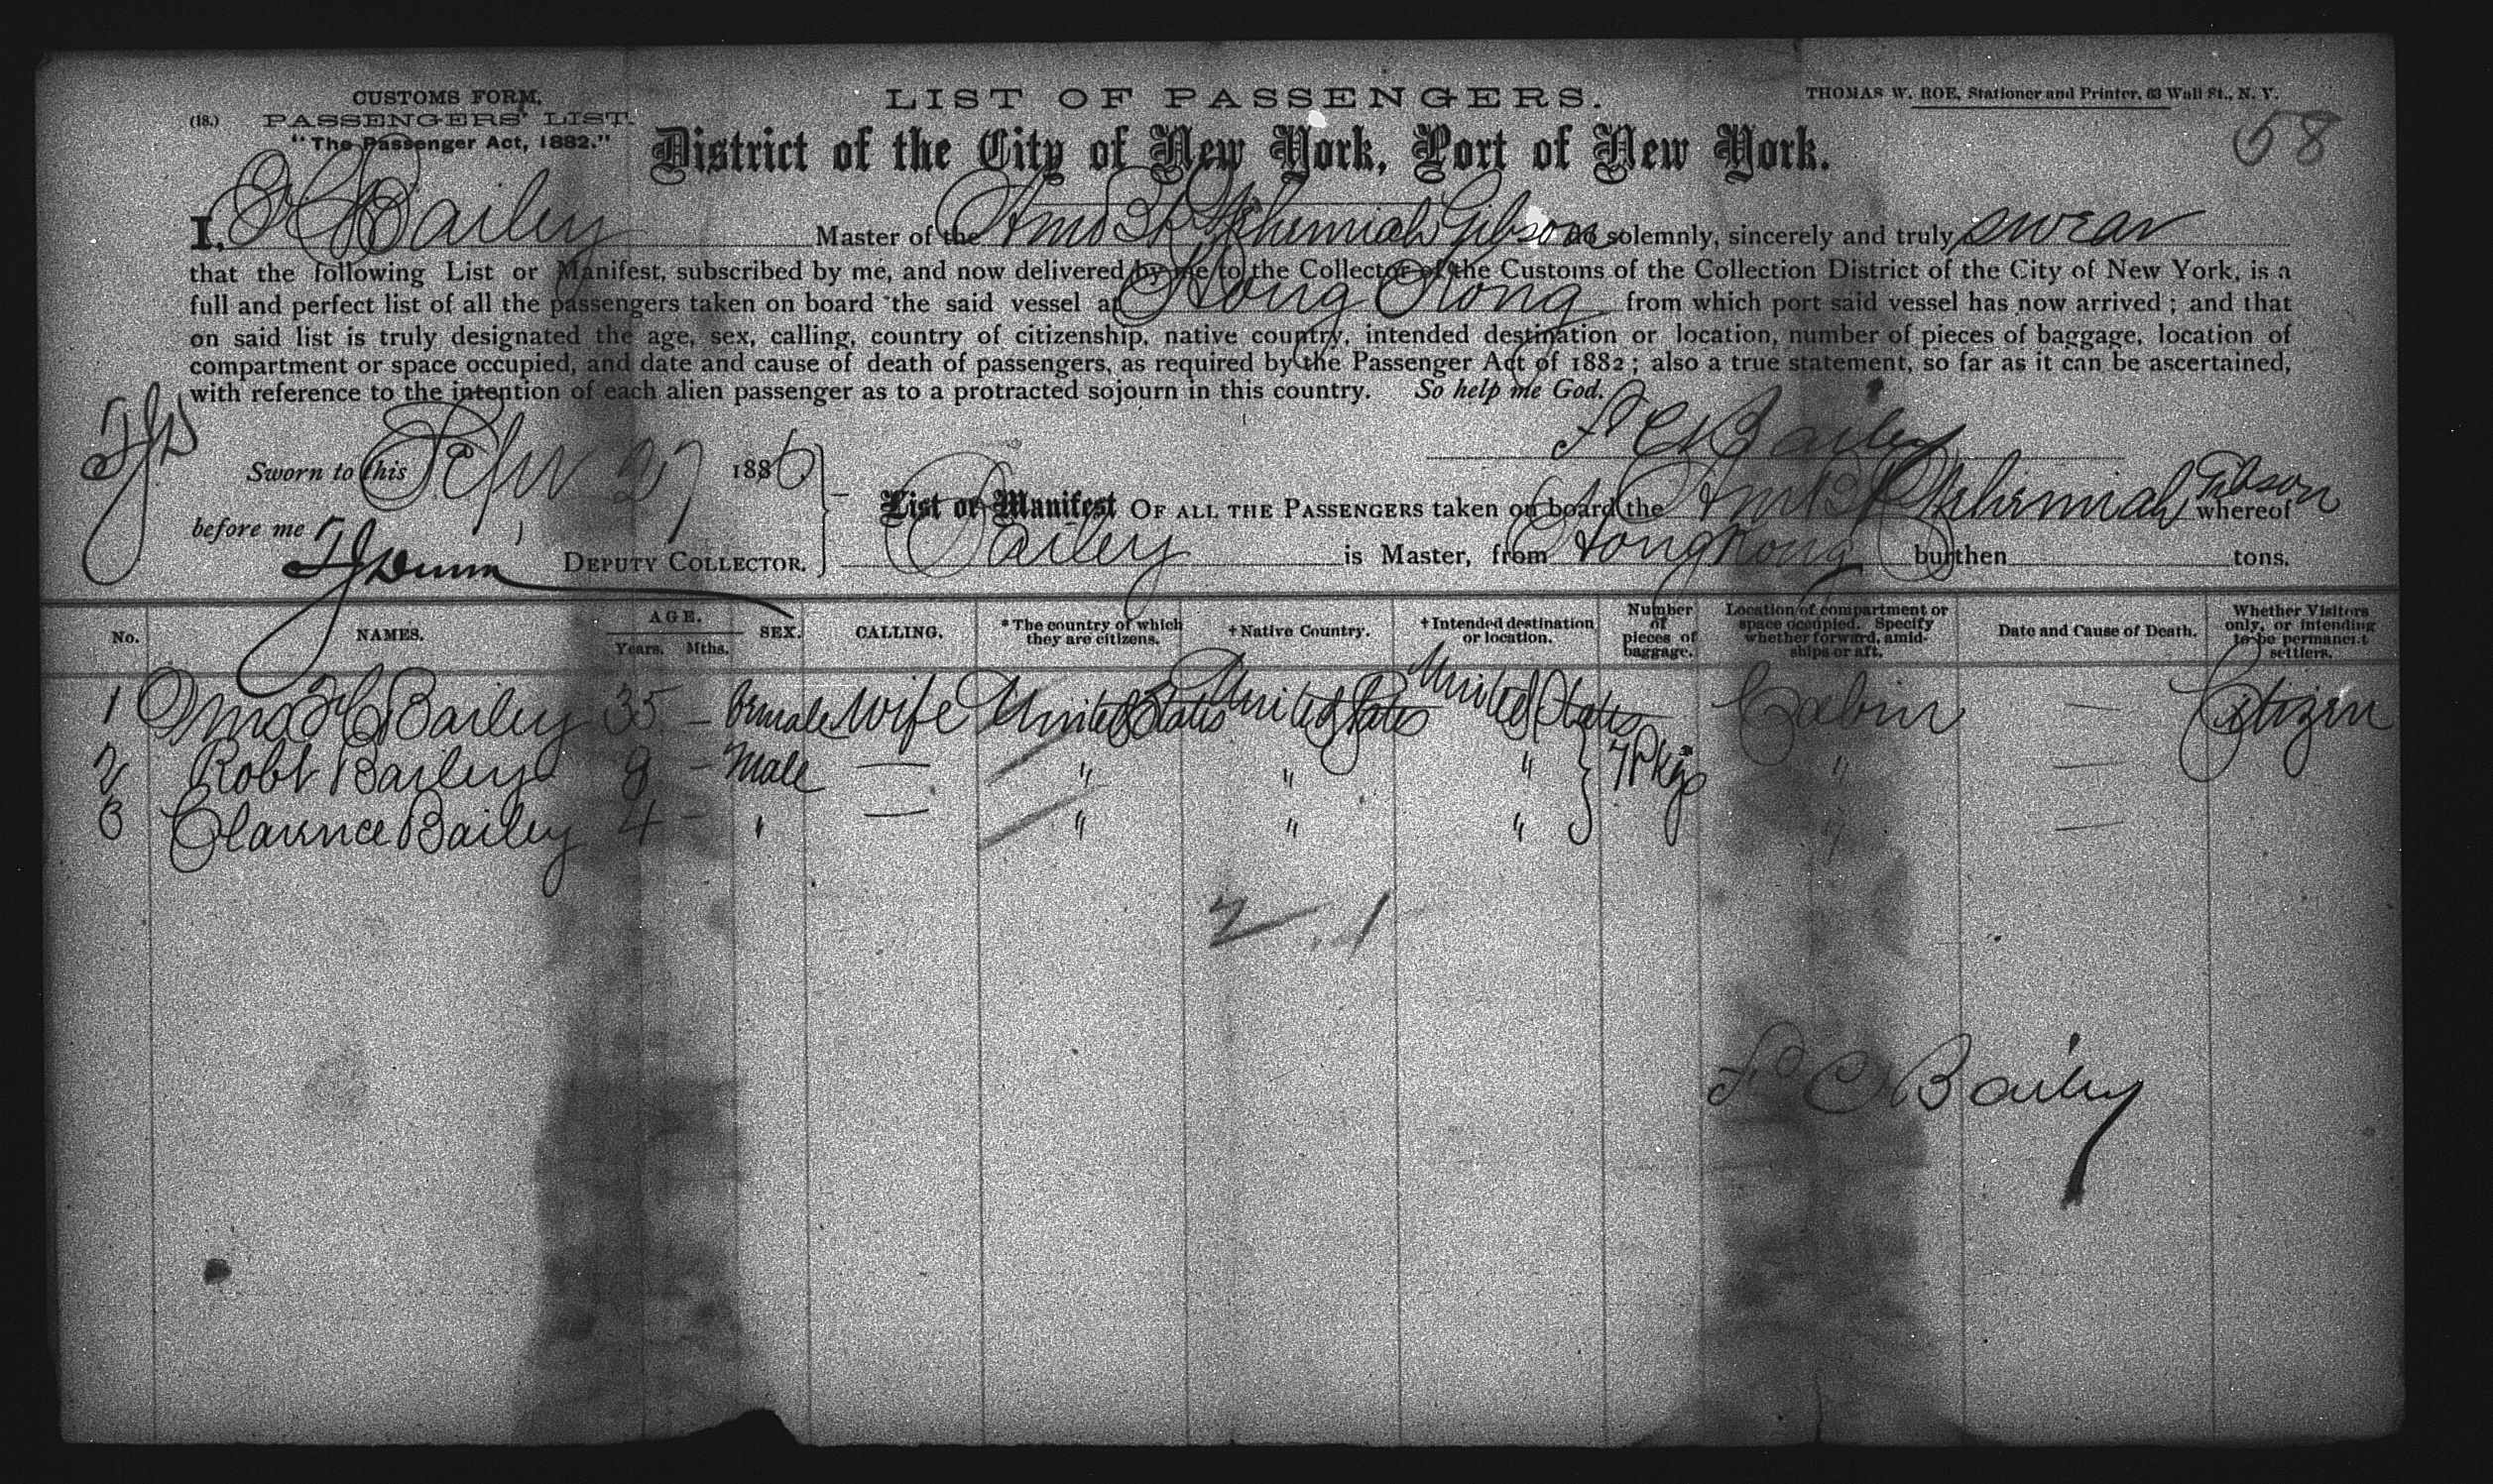 CUSTOMS FORM,
(18.) PASSENGERS' LIST.
"The Passenger Act, 1882."
LIST OF PASSENGERS.
THOMAS W. ROE, Stationer and Printer, 63 Wall St., N. Y.
58
District of the City of New York, Port of New York.
I, F C Bailey Master of the Am Bk Nehemiah Gibson do solemnly, sincerely and truly swear
that the following List or Manifest, subscribed by me, and now delivered by me to the Collector of the Customs of the Collection District of the City of New York, is a
full and perfect list of all the passengers taken on board the said vessel at Hong Kong from which port said vessel has now arrived; and that
on said list is truly designated the age, sex, calling, country of citizenship, native country, intended destination or location, number of pieces of baggage, location of
compartment or space occupied, and date and cause of death of passengers, as required by the Passenger Act of 1882; also a true statement, so far as it can be ascertained,
with reference to the intention of each alien passenger as to a protracted sojourn in this country. So help me God.
TJD
F C Bailey
Sworn to this Sepr 27 1886
before me
TJ Dunn DEPUTY COLLECTOR.
List or Manifest OF ALL THE PASSENGERS taken on board the Am Bk Nehemiah Gibson whereof
Bailey is Master, from Hong Kong burthen tons.
No. NAMES. AGE. Years. Mths. SEX. CALLING. *The country of which they are citizens. †Native Country. †Intended destination or location. Number of pieces of baggage. Location of compartment or space occupied. Specify whether forward, amidships or aft. Date and Cause of Death. Whether Visitors only, or intending to be permanent settlers.
1 F C Bailey 35 – Female Wife United States United States United States Cabin — Citizen
2 Robt Bailey 8 – Male — " " " 7 Pkgs " —
3 Clarence Bailey 4 – " — " " " " —
2 . 1
F C Bailey